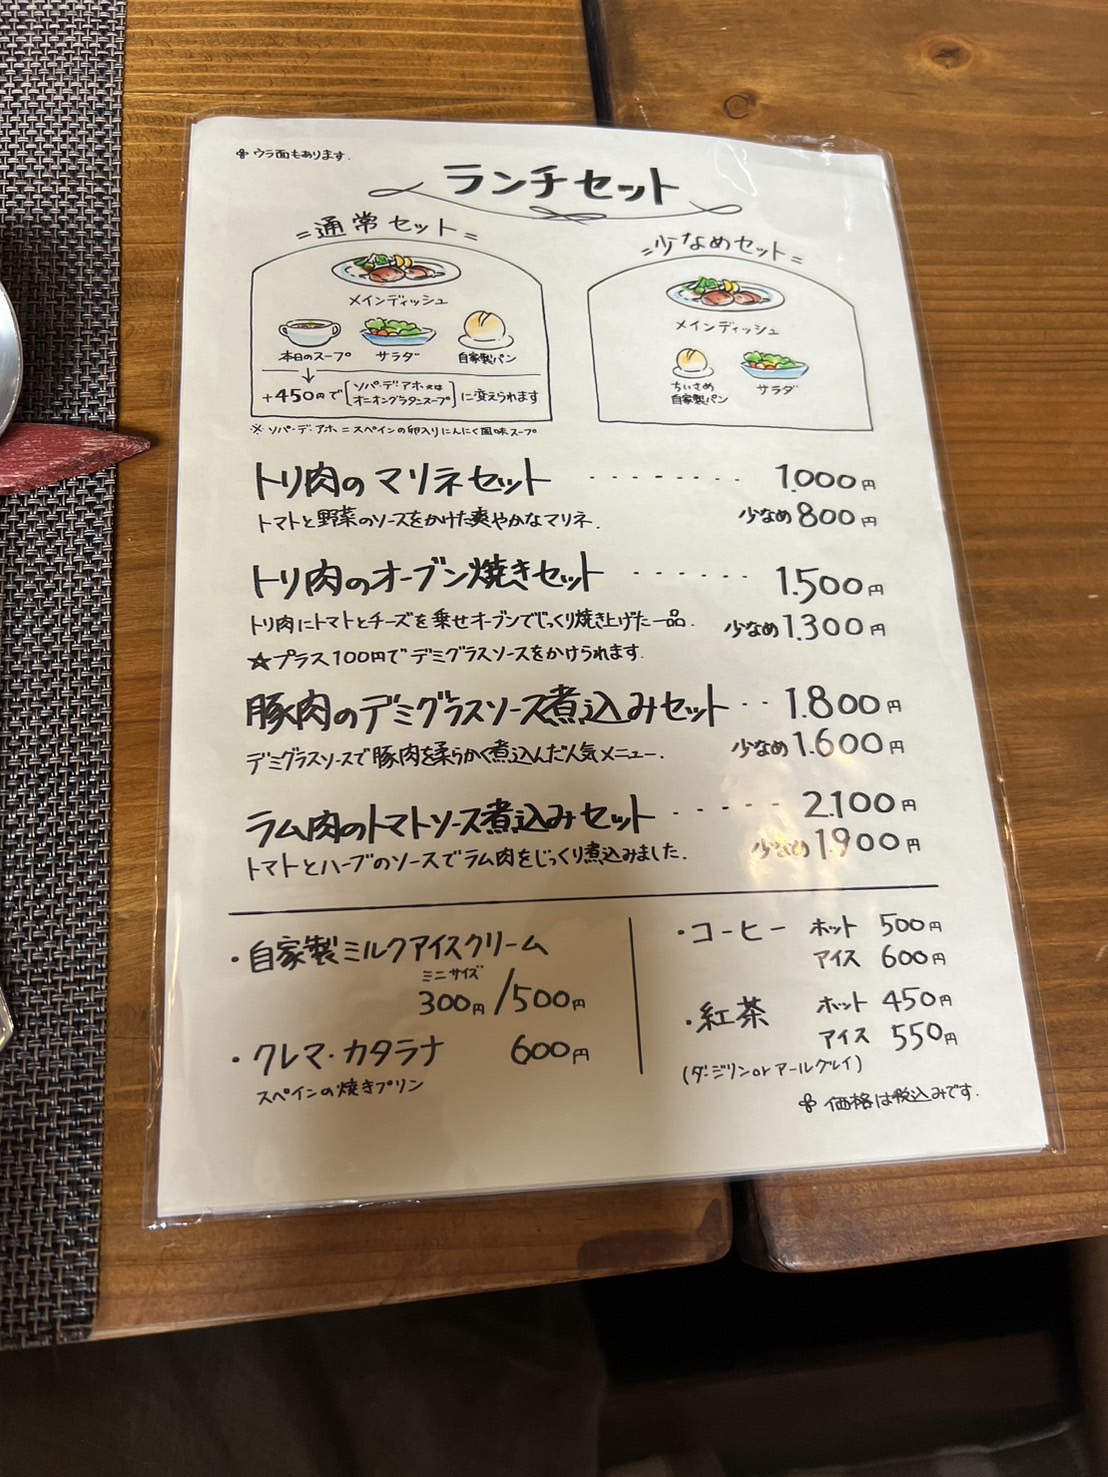 ウラ面もあります.
ランチセット
=通常セット=
メインディッシュ
本日のスープ サラダ 自家製パン
↓
+450円で[ソパ・デ・アホ又は オニオングラタンスープ]に変えられます
※ソパ・デ・アホ=スペインの卵入りにんにく風味スープ
=少なめセット=
メインディッシュ
ちいさめ
自家製パン
サラダ
トリ肉のマリネセット ········ 1.000円
トマトと野菜のソースをかけた爽やかなマリネ. 少なめ800円
トリ肉のオーブン焼きセット ······· 1.500円
トリ肉にトマトとチーズを乗せオーブンでじっくり焼き上げた一品. 少なめ1.300円
☆プラス100円でデミグラスソースをかけられます.
豚肉のデミグラスソース煮込みセット ·· 1.800円
デミグラスソースで豚肉を柔らかく煮込んだ人気メニュー. 少なめ1.600円
ラム肉のトマトソース煮込みセット ····· 2.100円
トマトとハーブのソースでラム肉をじっくり煮込みました. 少なめ1.900円
・自家製ミルクアイスクリーム
ミニサイズ
300円/500円
・クレマ・カタラナ 600円
スペインの焼きプリン
・コーヒー ホット 500円
アイス 600円
・紅茶 ホット 450円
アイス 550円
(ダージリンorアールグレイ)
価格は税込みです.